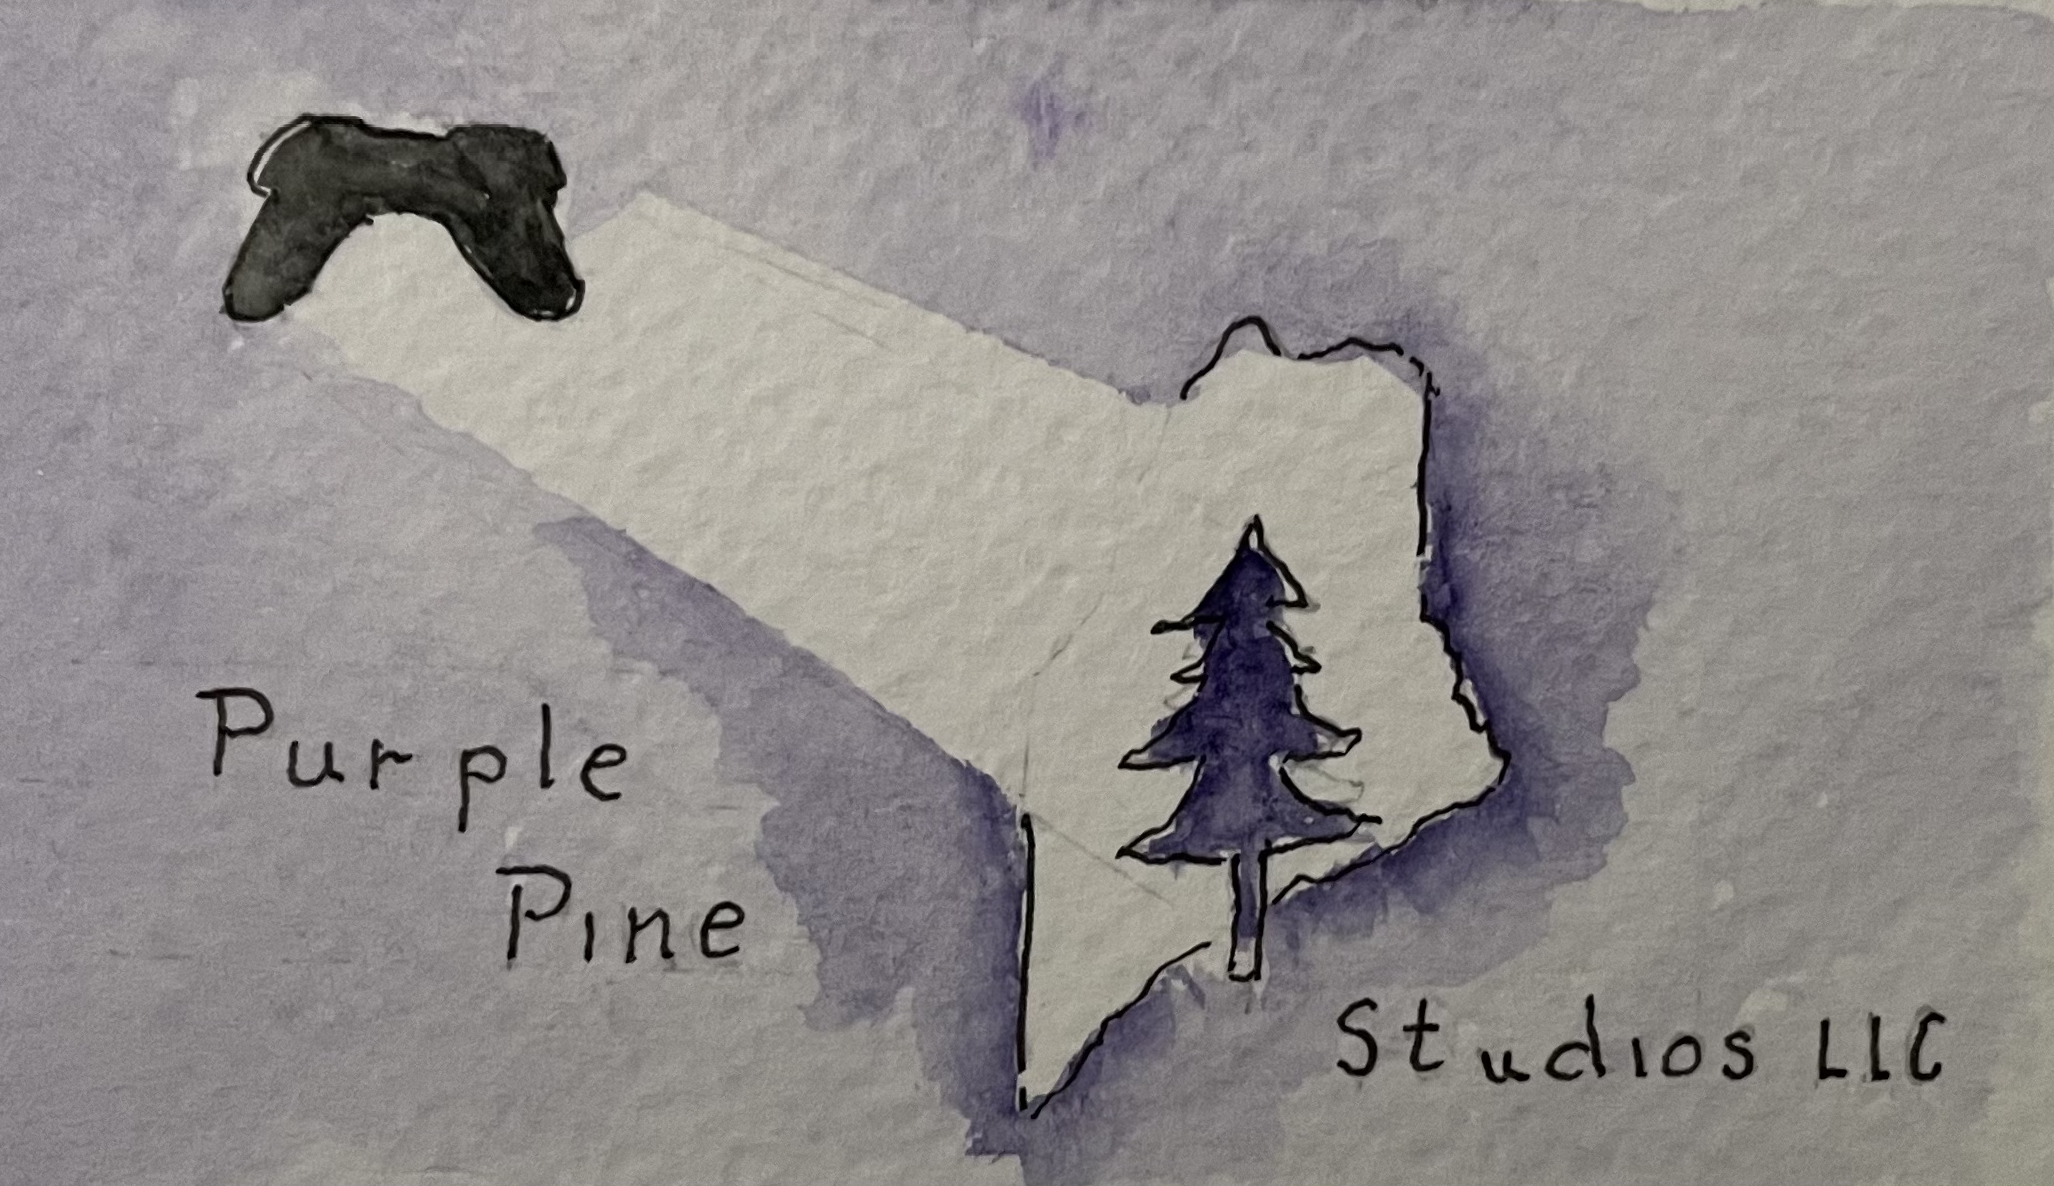 Purple
Pine
Studios LLC